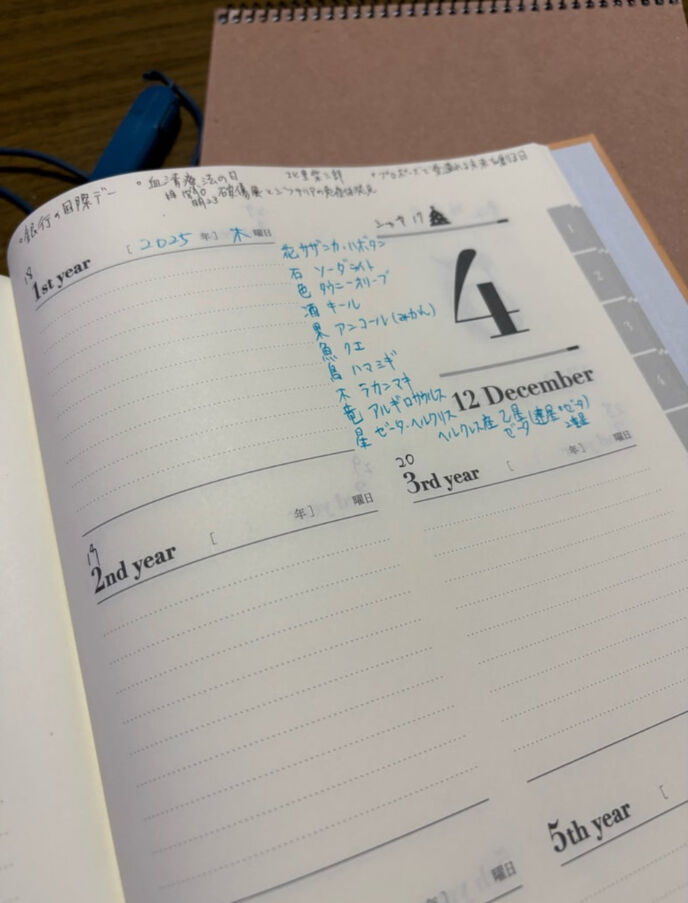 ・銀行の国際デー ・血清療法の日 北里柴三郎 ・プロポーズで
破傷風とジフテリアの免疫
18
1st year [2025年] 木曜日
花 サザンカ・ハボタン
石 ソーダライト
色 タウニーオリーブ
酒 キール
果 アンコール(みかん)
魚 クエ
鳥 ハマシギ
木 ラカンマキ
竜 アルゲロサウルス
星 ゼータ・ヘルクリス
ヘルクレス座 ζ星(連星・ゼータ)
ゼータ 連星
4
12 December
19
2nd year [ 年] 曜日
20
3rd year [ 年] 曜日
年] 曜日
5th year [
1
2
3
4